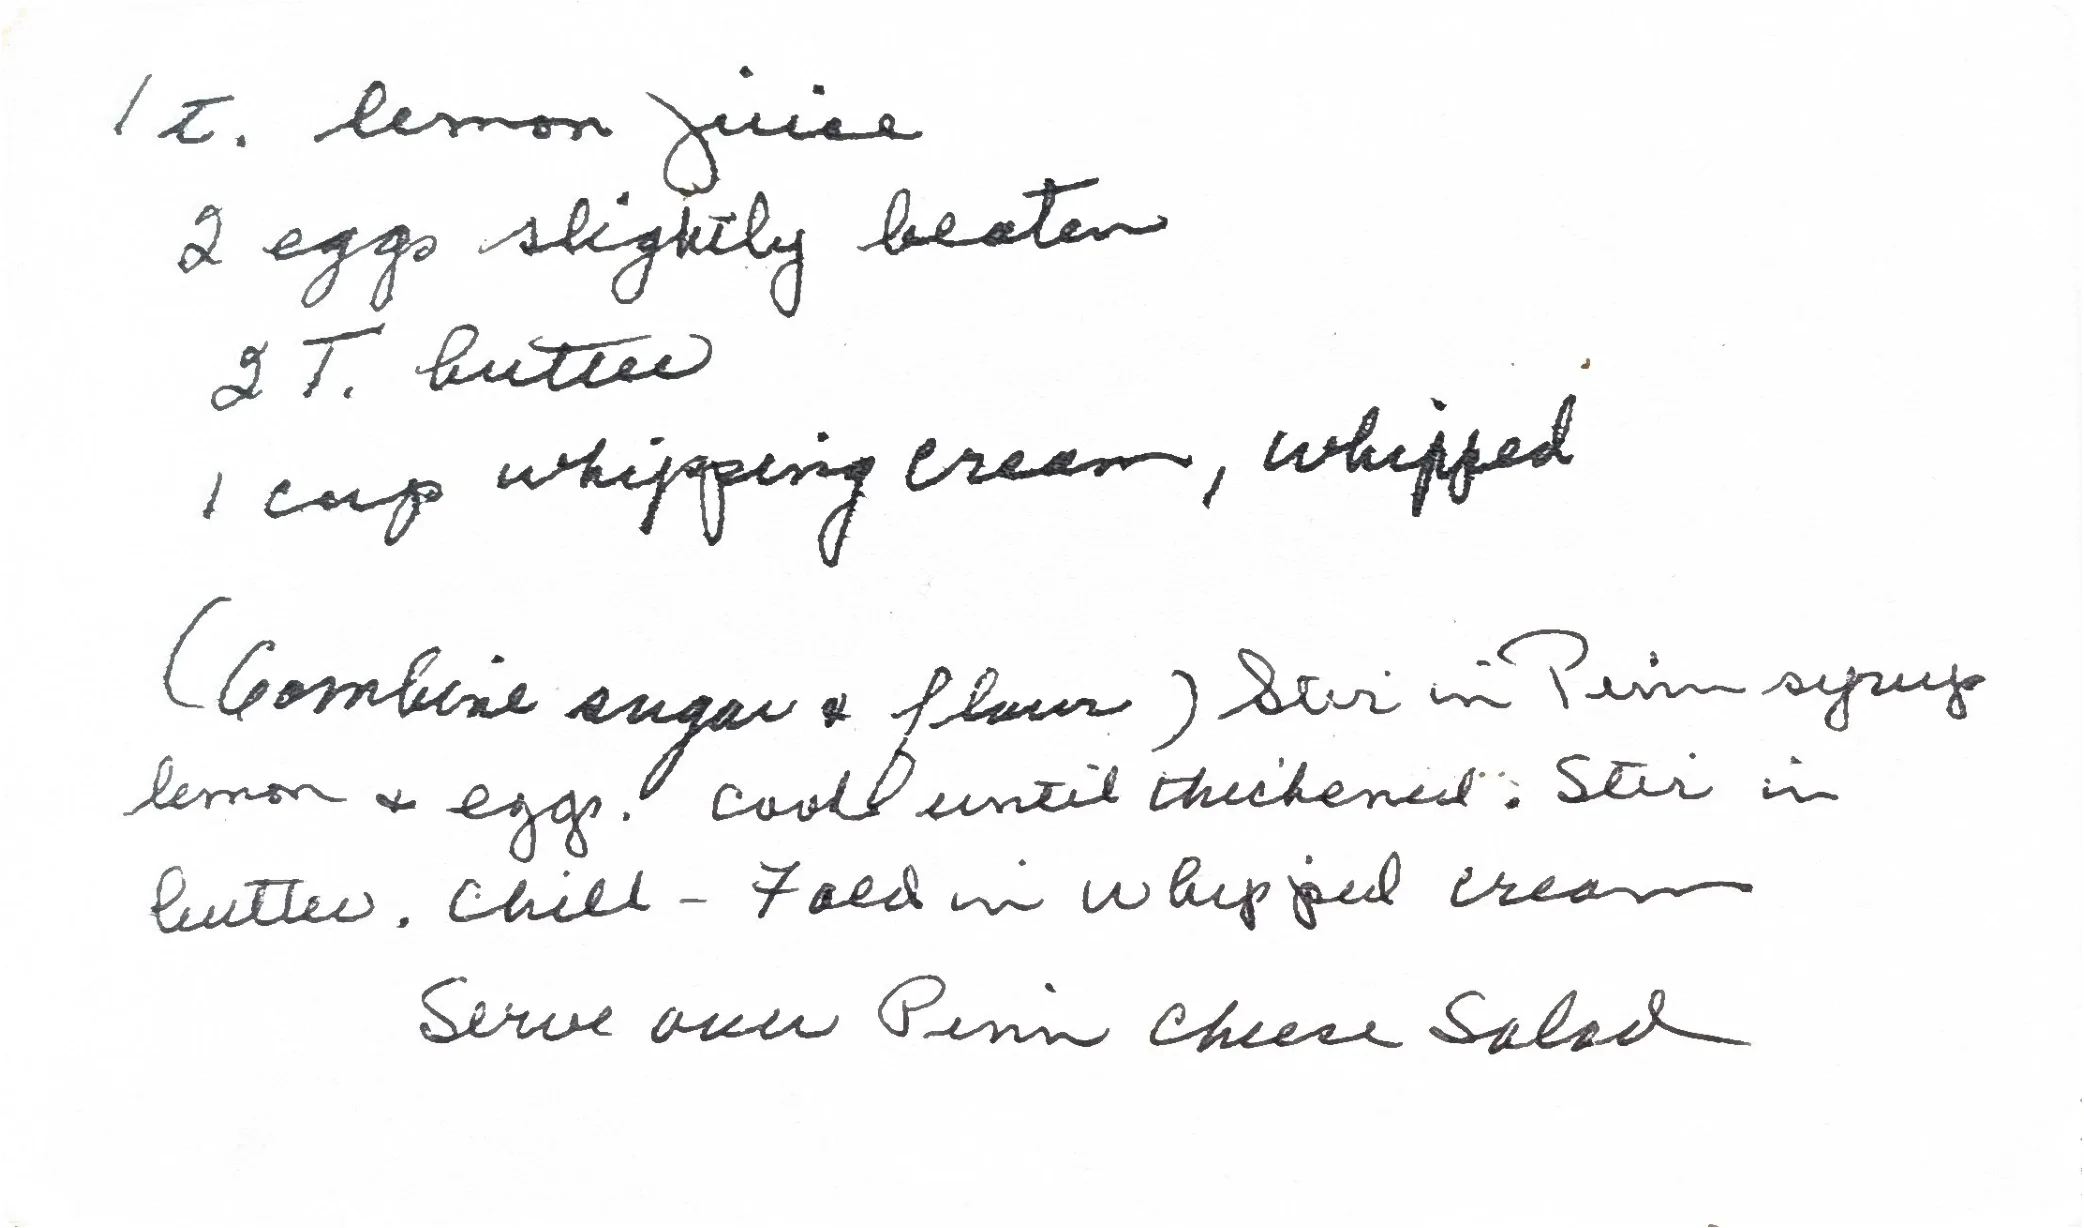 1 t. lemon juice
2 eggs slightly beaten
2 T. butter
1 cup whipping cream, whipped
(Combine sugar & flour) Stir in Pinn syrup
lemon & eggs. Cook until thickened. Stir in
butter. Chill - Fold in whipped cream
Serve over Pinn Cheese Salad